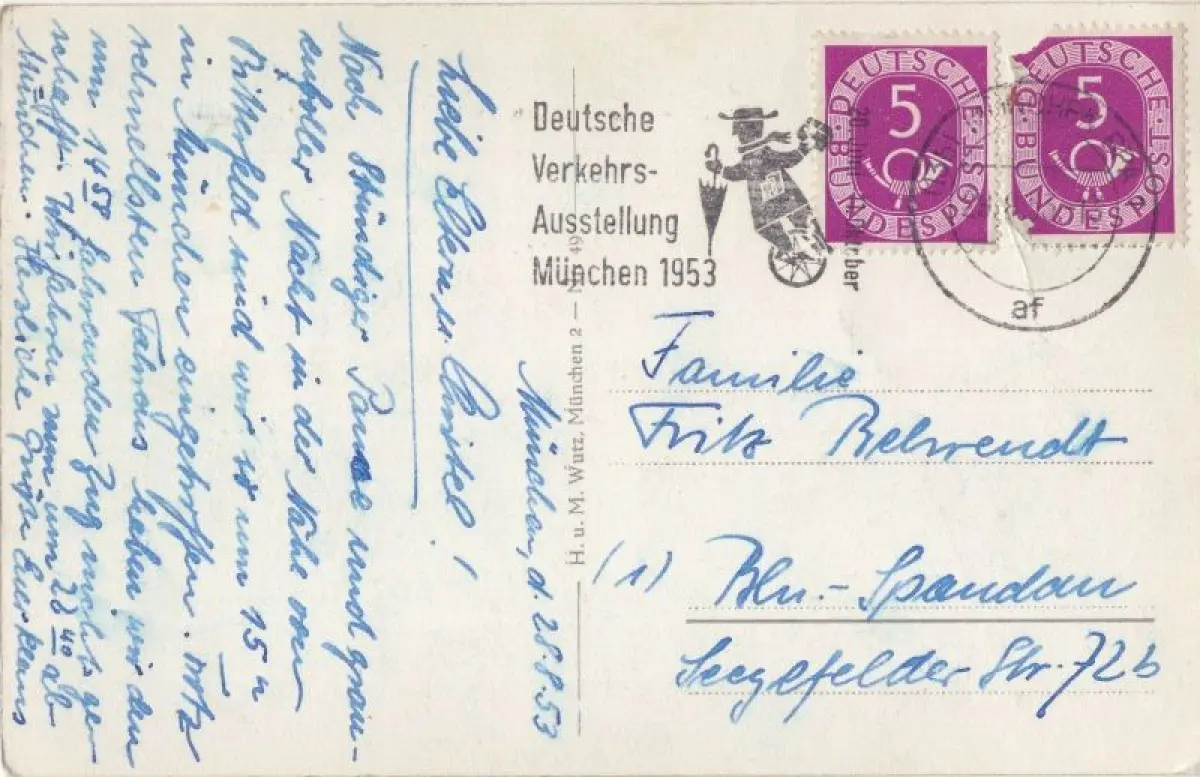 München, d. 28.8.53
Liebe Eltern u. Christel!
Nach Stündiger Panne und grau-
enfoller Nacht in der Nähe von
Bitterfeld sind wir so um 15 h
in München eingetroffen. Trotz
schnellsten Fahrens haben wir den
um 14 58 fahrenden Zug nicht ge-
schafft. Wir fahren nun um 22 40 ab
München. Herzliche Grüße Euer Klaus
H. u. M. Wutz, München 2 —
Deutsche
Verkehrs-
Ausstellung
München 1953
DEUTSCHE BUNDESPOST
5
DEUTSCHE BUNDESPOST
5
af
Familie
Fritz Behrendt
(1) Bln.-Spandau
Seegefelder Str. 72b